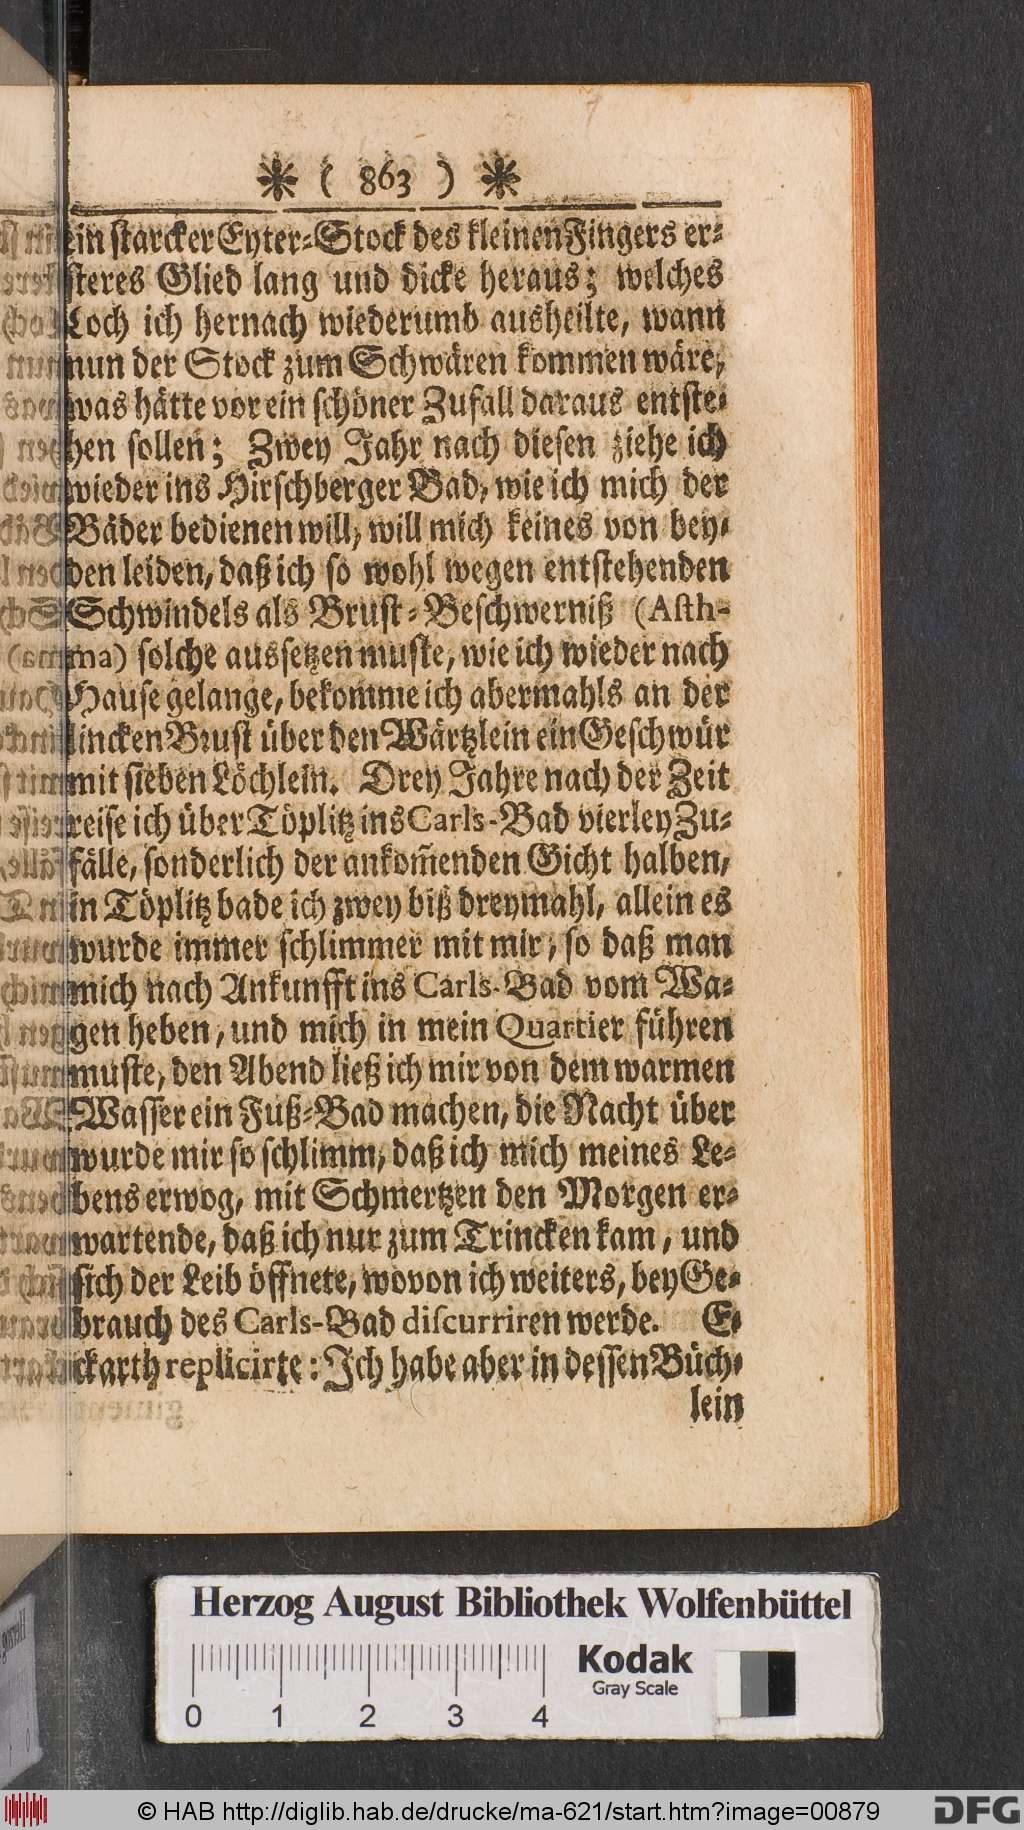 * ( 863 ) *
ein starcker Eyter-Stock des kleinen Fingers er-
steres Glied lang und dicke heraus; welches
Loch ich hernach wiederumb ausheilte, wann
nun der Stock zum Schwären kommen wäre,
was hätte vor ein schöner Zufall daraus entste-
hen sollen; Zwey Jahr nach diesen ziehe ich
wieder ins Hirschberger Bad, wie ich mich der
Bäder bedienen will, will mich keines von bey-
den leiden, daß ich so wohl wegen entstehenden
Schwindels als Brust-Beschwerniß (Asth-
ma) solche aussetzen muste, wie ich wieder nach
Hause gelange, bekomme ich abermahls an der
lincken Brust über den Wärtzlein ein Geschwür
mit sieben Löchlein. Drey Jahre nach der Zeit
reise ich über Töplitz ins Carls-Bad vierley Zu-
fälle, sonderlich der ankom̃enden Gicht halben,
in Töplitz bade ich zwey biß dreymahl, allein es
wurde immer schlimmer mit mir, so daß man
mich nach Ankunfft ins Carls-Bad vom Wa-
gen heben, und mich in mein Quartier führen
muste, den Abend ließ ich mir von dem warmen
Wasser ein Fuß-Bad machen, die Nacht über
wurde mir so schlimm, daß ich mich meines Le-
bens erwog, mit Schmertzen den Morgen er-
wartende, daß ich nur zum Trincken kam, und
sich der Leib öffnete, wovon ich weiters, bey Ge-
brauch des Carls-Bad discurriren werde. E-
ckarth replicirte: Ich habe aber in dessen Büch-
lein
Herzog August Bibliothek Wolfenbüttel
Kodak
Gray Scale
0 1 2 3 4
© HAB http://diglib.hab.de/drucke/ma-621/start.htm?image=00879
DFG